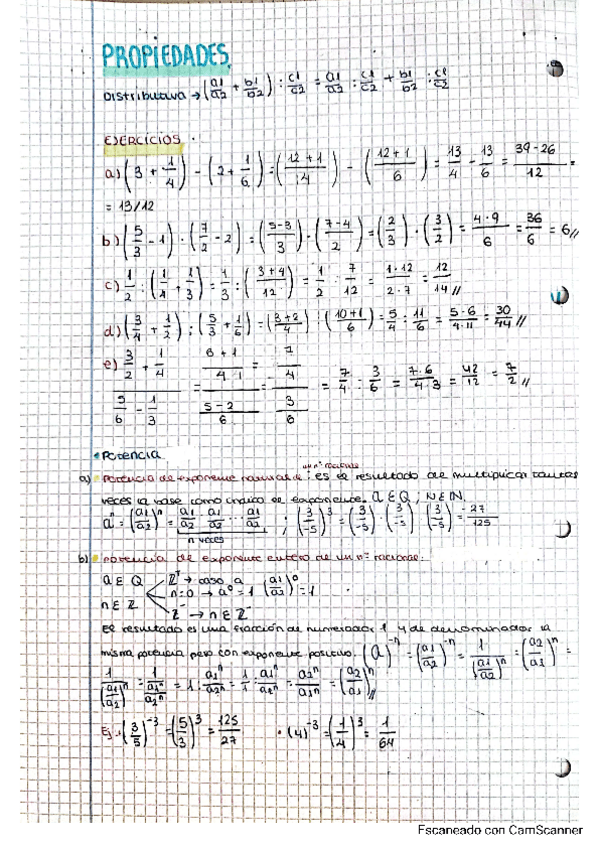 PROPIEDADES.
Distributiva → (a1/a2 + b1/b2) : c1/c2 = a1/a2 : c1/c2 + b1/b2 : c1/c2
EJERCICIOS.
a) (3 + 1/4) - (2 + 1/6) = ((12+1)/4) - ((12+1)/6) = 13/4 - 13/6 = (39-26)/12 =
= 13/12
b) (5/3 - 1) · (7/2 - 2) = ((5-3)/3) · ((7-4)/2) = (2/3) · (3/2) = (4·9)/6 = 36/6 = 6//
c) 1/2 : (1/4 + 1/3) = 1/3 : ((3+4)/12) = 1/2 : 7/12 = (1·12)/(2·7) = 12/14//
d) (3/4 + 1/2) : (5/3 + 1/6) = ((3+2)/4) : ((10+1)/6) = 5/4 : 11/6 = (5·6)/(4·11) = 30/44//
e) (3/2 + 1/4)/(5/6 - 1/3) = ((6+1)/4)/((5-2)/6) = (7/4)/(3/6) = 7/4 : 3/6 = (7·6)/(4·3) = 42/12 = 7/2//
• Potencia
a) Potencia de exponente natural de un nº racional: es el resultado de multiplicar tantas
veces la base como indica el exponente. a ∈ Q ; N ∈ N.
aⁿ = (a1/a2)ⁿ = a1/a2 · a1/a2 ··· a1/a2 ; (3/-5)³ = (3/-5) · (3/-5) · (3/-5) = -27/125
n veces
b) Potencia de exponente entero de un nº racional:
a ∈ Q Z⁺ → caso a
n ∈ Z n=0 → a⁰ = 1 (a1/a2)⁰ = 1
Z⁻ → n ∈ Z⁻
El resultado es una fracción de numerador 1 y de denominador la
misma potencia pero con exponente positivo. (a)⁻ⁿ = (a1/a2)⁻ⁿ = 1/(a1/a2)ⁿ = (a2/a1)ⁿ =
1/(a1/a2)ⁿ = 1/(a1ⁿ/a2ⁿ) = 1 : a1ⁿ/a2ⁿ = 1/1 : a1ⁿ/a2ⁿ = a2ⁿ/a1ⁿ = (a2/a1)ⁿ//
Ej: · (3/5)⁻³ = (5/3)³ = 125/27 · (4)⁻³ = (1/4)³ = 1/64
Escaneado con CamScanner